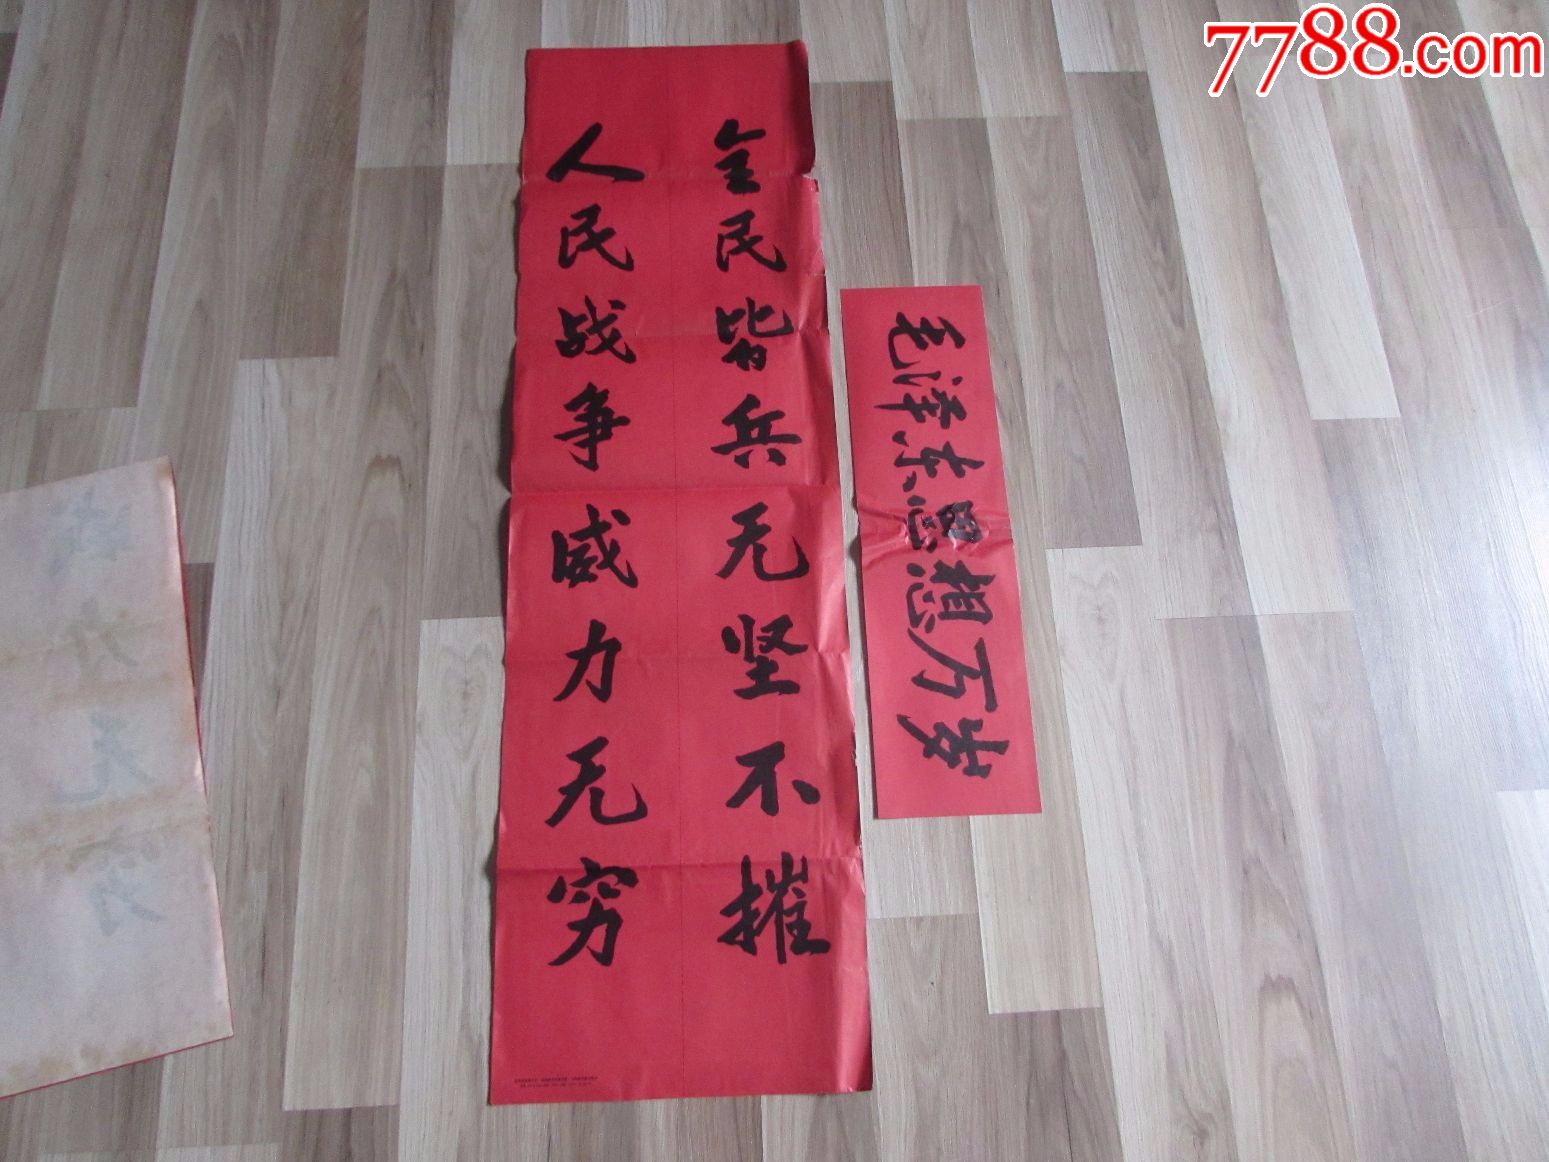 7788.com
全民皆兵无坚不摧
人民战争威力无穷
毛泽东思想万岁